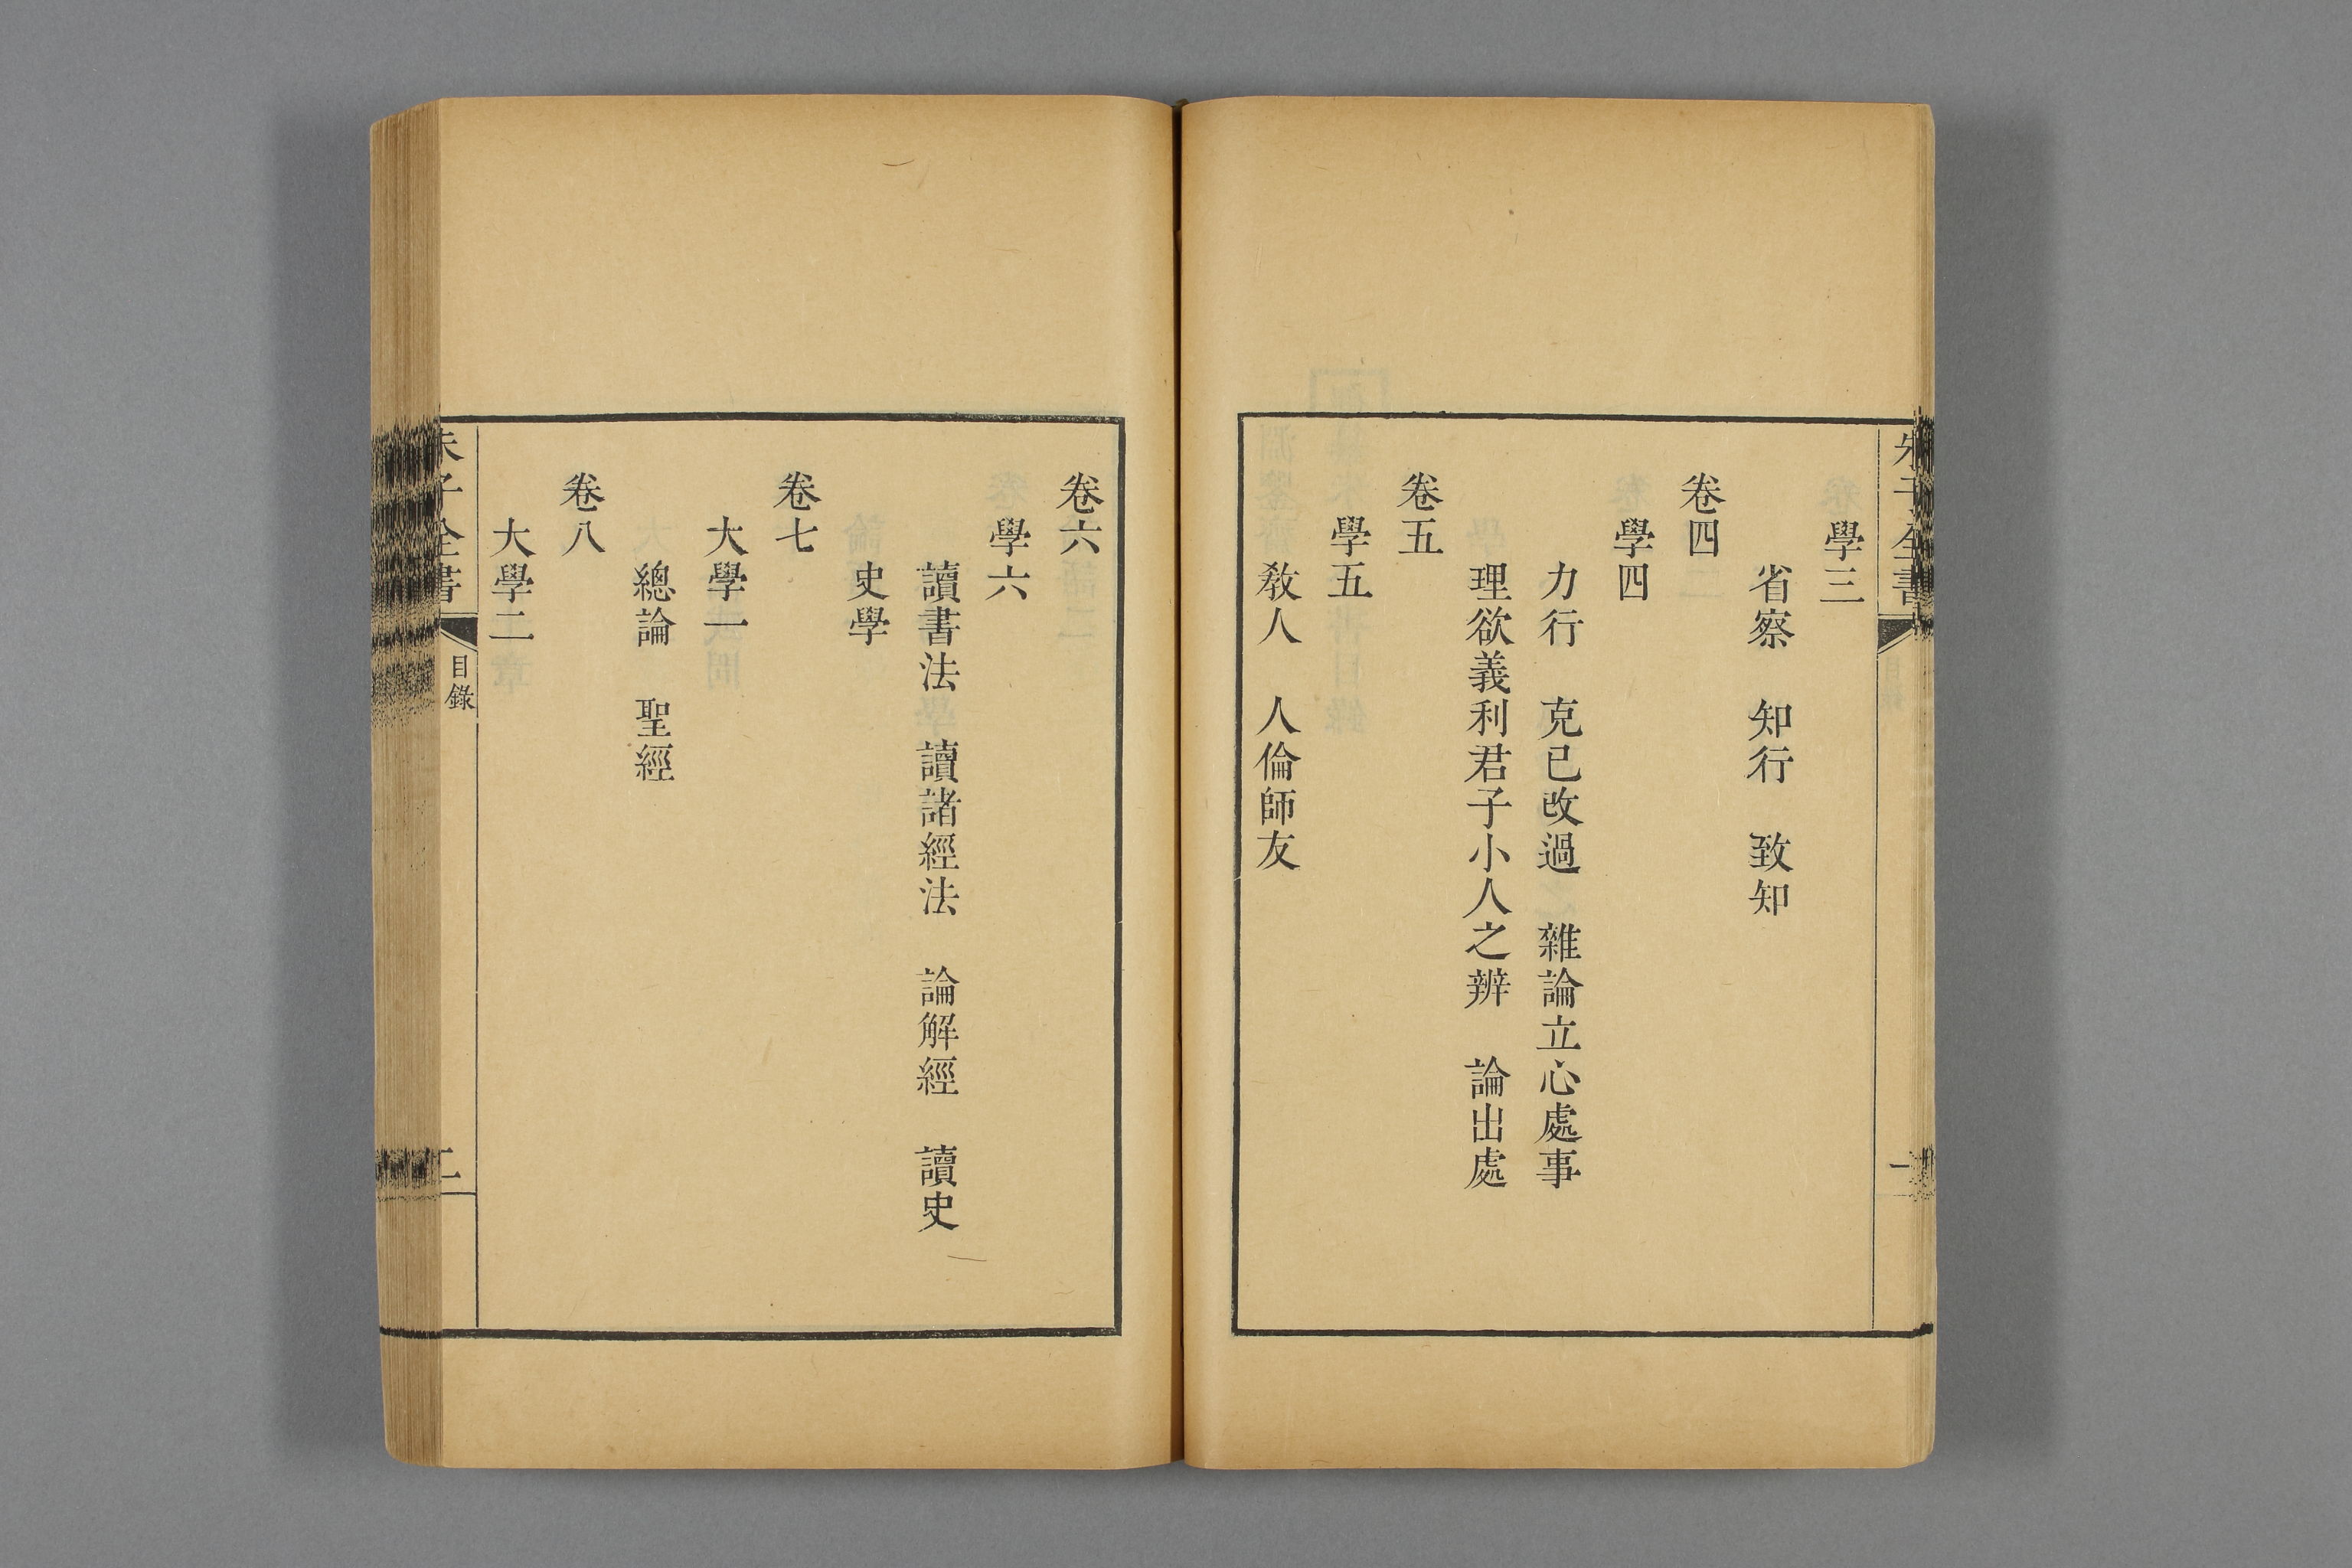 朱子全書
一
學三
省察　知行　致知
卷四
學四
力行　克已改過　雜論立心處事
理欲義利君子小人之辨　論出處
卷五
學五
敎人　人倫師友
卷六
學六
讀書法　讀諸經法　論解經　讀史
史學
卷七
大學一
總論　聖經
卷八
大學二
朱子全書
目錄
二